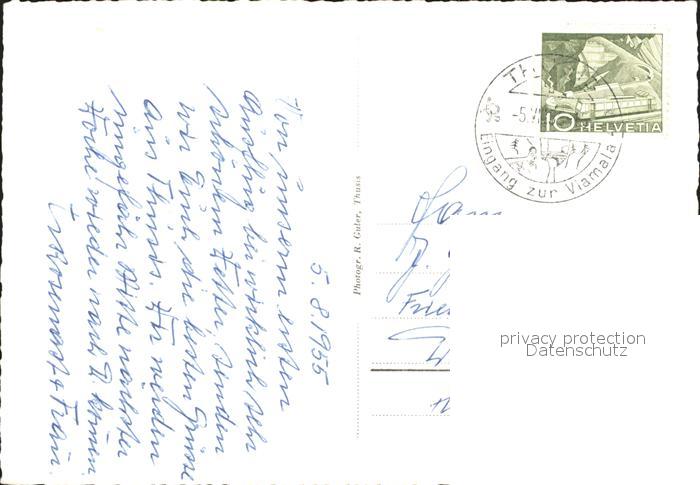 5. 8. 1955
Von unserm ersten
Ausflug bei wirklich sehr
schönem Wetter senden
wir Euch die besten Grüsse
aus Thusis. Wir werden
ungefähr Mitte nächster
Woche wieder nach Z. kommen.
Rosemarie & Franz.
Photogr. R. Guler, Thusis
Thusis
-5.VIII
Eingang zur Viamala
10 HELVETIA
Fam
Frie
privacy protection
Datenschutz